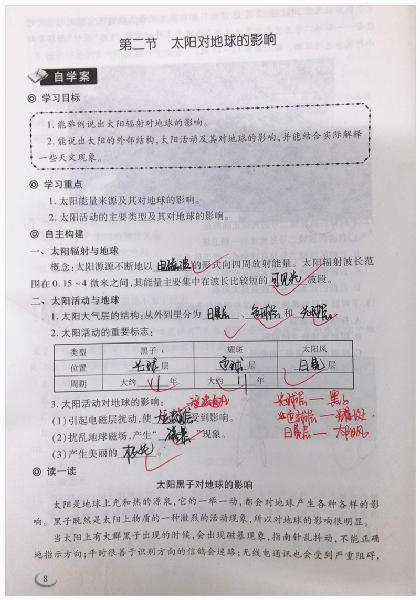 第二节 太阳对地球的影响
自学案
学习目标
1.能举例说出太阳辐射对地球的影响。
2.能说出太阳的外部结构,太阳活动及其对地球的影响,并能结合实际解释
一些天文现象。
学习重点
1.太阳能量来源及其对地球的影响。
2.太阳活动的主要类型及其对地球的影响。
自主构建
一、太阳辐射与地球
概念:太阳源源不断地以 电磁波 的形式向四周放射能量。太阳辐射波长范
围在0.15~4微米之间,其能量主要集中在波长比较短的 可见光 波段。
二、太阳活动与地球
1.太阳大气层的结构:从外到里分为 日冕层 、 色球层 和 光球层 。
2.太阳活动的重要标志:
类型 黑子 耀斑 太阳风
位置 光球 层 色球 层 日冕 层
周期 大约 11 年 大约 11 年
3.太阳活动对地球的影响:
(1)引起电磁层扰动,使 受到影响。
(2)扰乱地球磁场,产生“磁暴”现象。
(3)产生美丽的 极光 。
光球层——黑子
色球层——耀斑
日冕层——太阳风
读一读
太阳黑子对地球的影响
太阳是地球上光和热的源泉,它的一举一动,都会对地球产生各种各样的影
响。黑子既然是太阳上物质的一种激烈的活动现象,所以对地球的影响很明显。
当太阳上有大群黑子出现的时候,会出现磁暴现象,指南针乱抖动,不能正确
地指示方向;平时很善于识别方向的信鸽会迷路;无线电通讯也会受到严重阻碍,
8